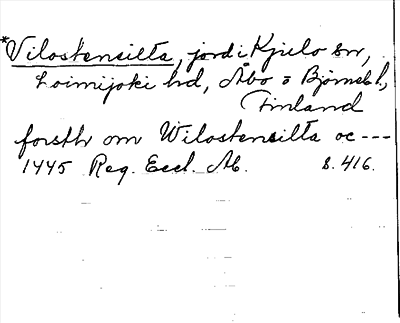 *Vilostensilta, jord i Kjulo sn,
Loimijoki hd, Åbo o Björneb. l,
Finland
forsth om Wilostensilta oc ---
1445 Reg. Eccl. Ab. s. 416.